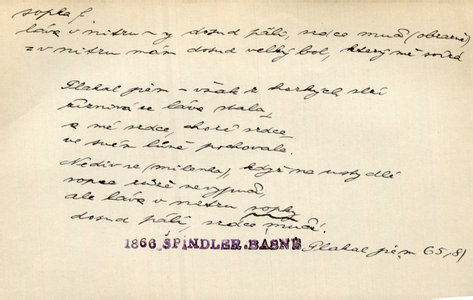 sopka f.
láva v nitru ~ y dosud pálí, srdce mučí (obrazně)
= v nitru mám dosud velký bol, který mě svírá
Plakal jsem – však z horkých slzí
kamenná se láva stala
a mé srdce, choré srdce
ve svém lůně pochovala.
Nediv se (milenko), když na usty dlí
sopka růže nevyjímá,
ale láva v nitru sopky
dosud pálí, srdce mučí.
1866 ŠPINDLER BÁSNĚ Plakal jsem 65, (81)